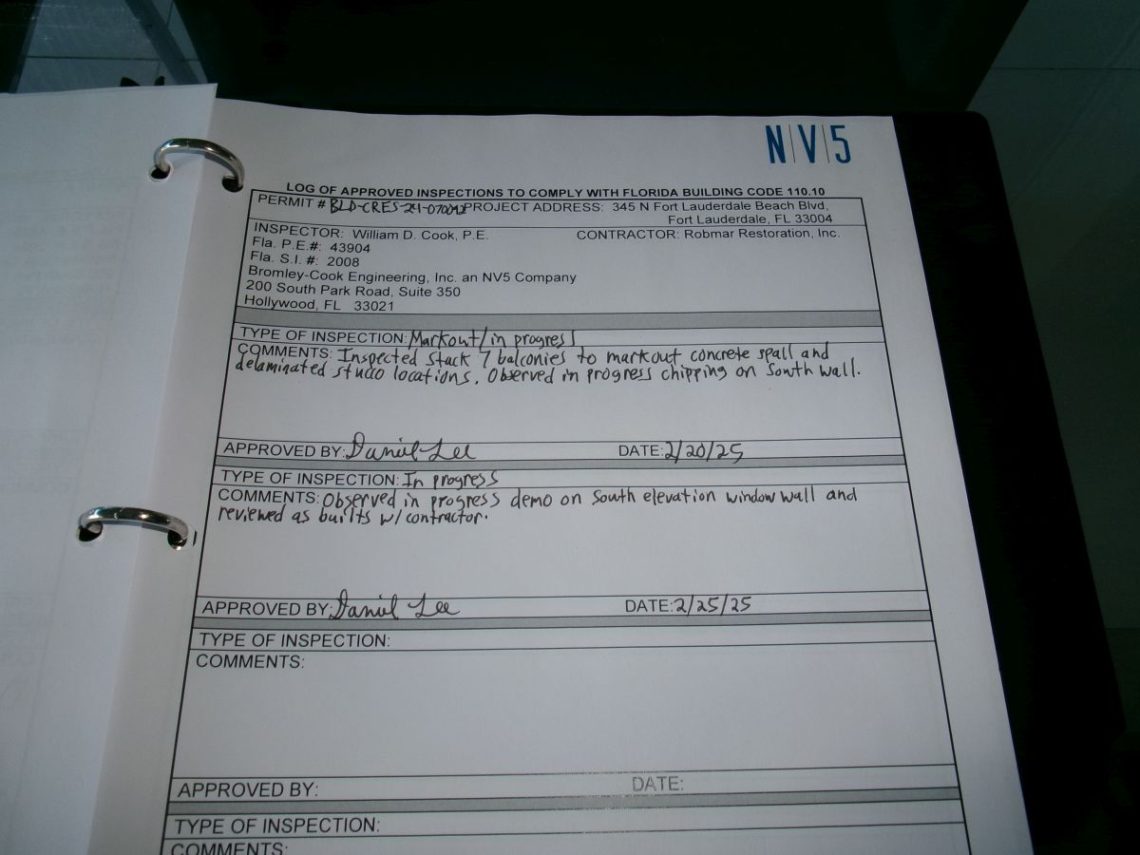 N|V|5
LOG OF APPROVED INSPECTIONS TO COMPLY WITH FLORIDA BUILDING CODE 110.10
PERMIT # PROJECT ADDRESS: 345 N Fort Lauderdale Beach Blvd,
Fort Lauderdale, FL 33004
INSPECTOR: William D. Cook, P.E. CONTRACTOR: Robmar Restoration, Inc.
Fla. P.E.#: 43904
Fla. S.I. #: 2008
Bromley-Cook Engineering, Inc. an NV5 Company
200 South Park Road, Suite 350
Hollywood, FL 33021
TYPE OF INSPECTION: Markout/in progress
COMMENTS: Inspected Stack 7 balconies to markout concrete spall and
delaminated stucco locations. Observed in progress chipping on South wall.
APPROVED BY: Daniel Lee DATE: 2/20/25
TYPE OF INSPECTION: In progress
COMMENTS: Observed in progress demo on South elevation window wall and
reviewed as builts w/contractor.
APPROVED BY: Daniel Lee DATE: 2/25/25
TYPE OF INSPECTION:
COMMENTS:
APPROVED BY: DATE:
TYPE OF INSPECTION:
COMMENTS: